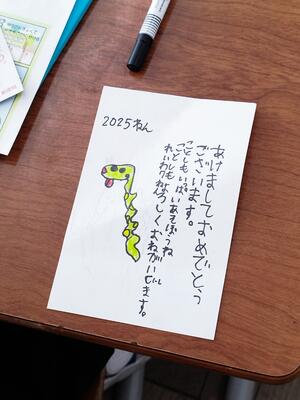 2025ねん
あけましておめでとう
ございます。
ことしもいっぱいあそぼうね
ことしもよろしくおねがいします。
れいわ7ねん